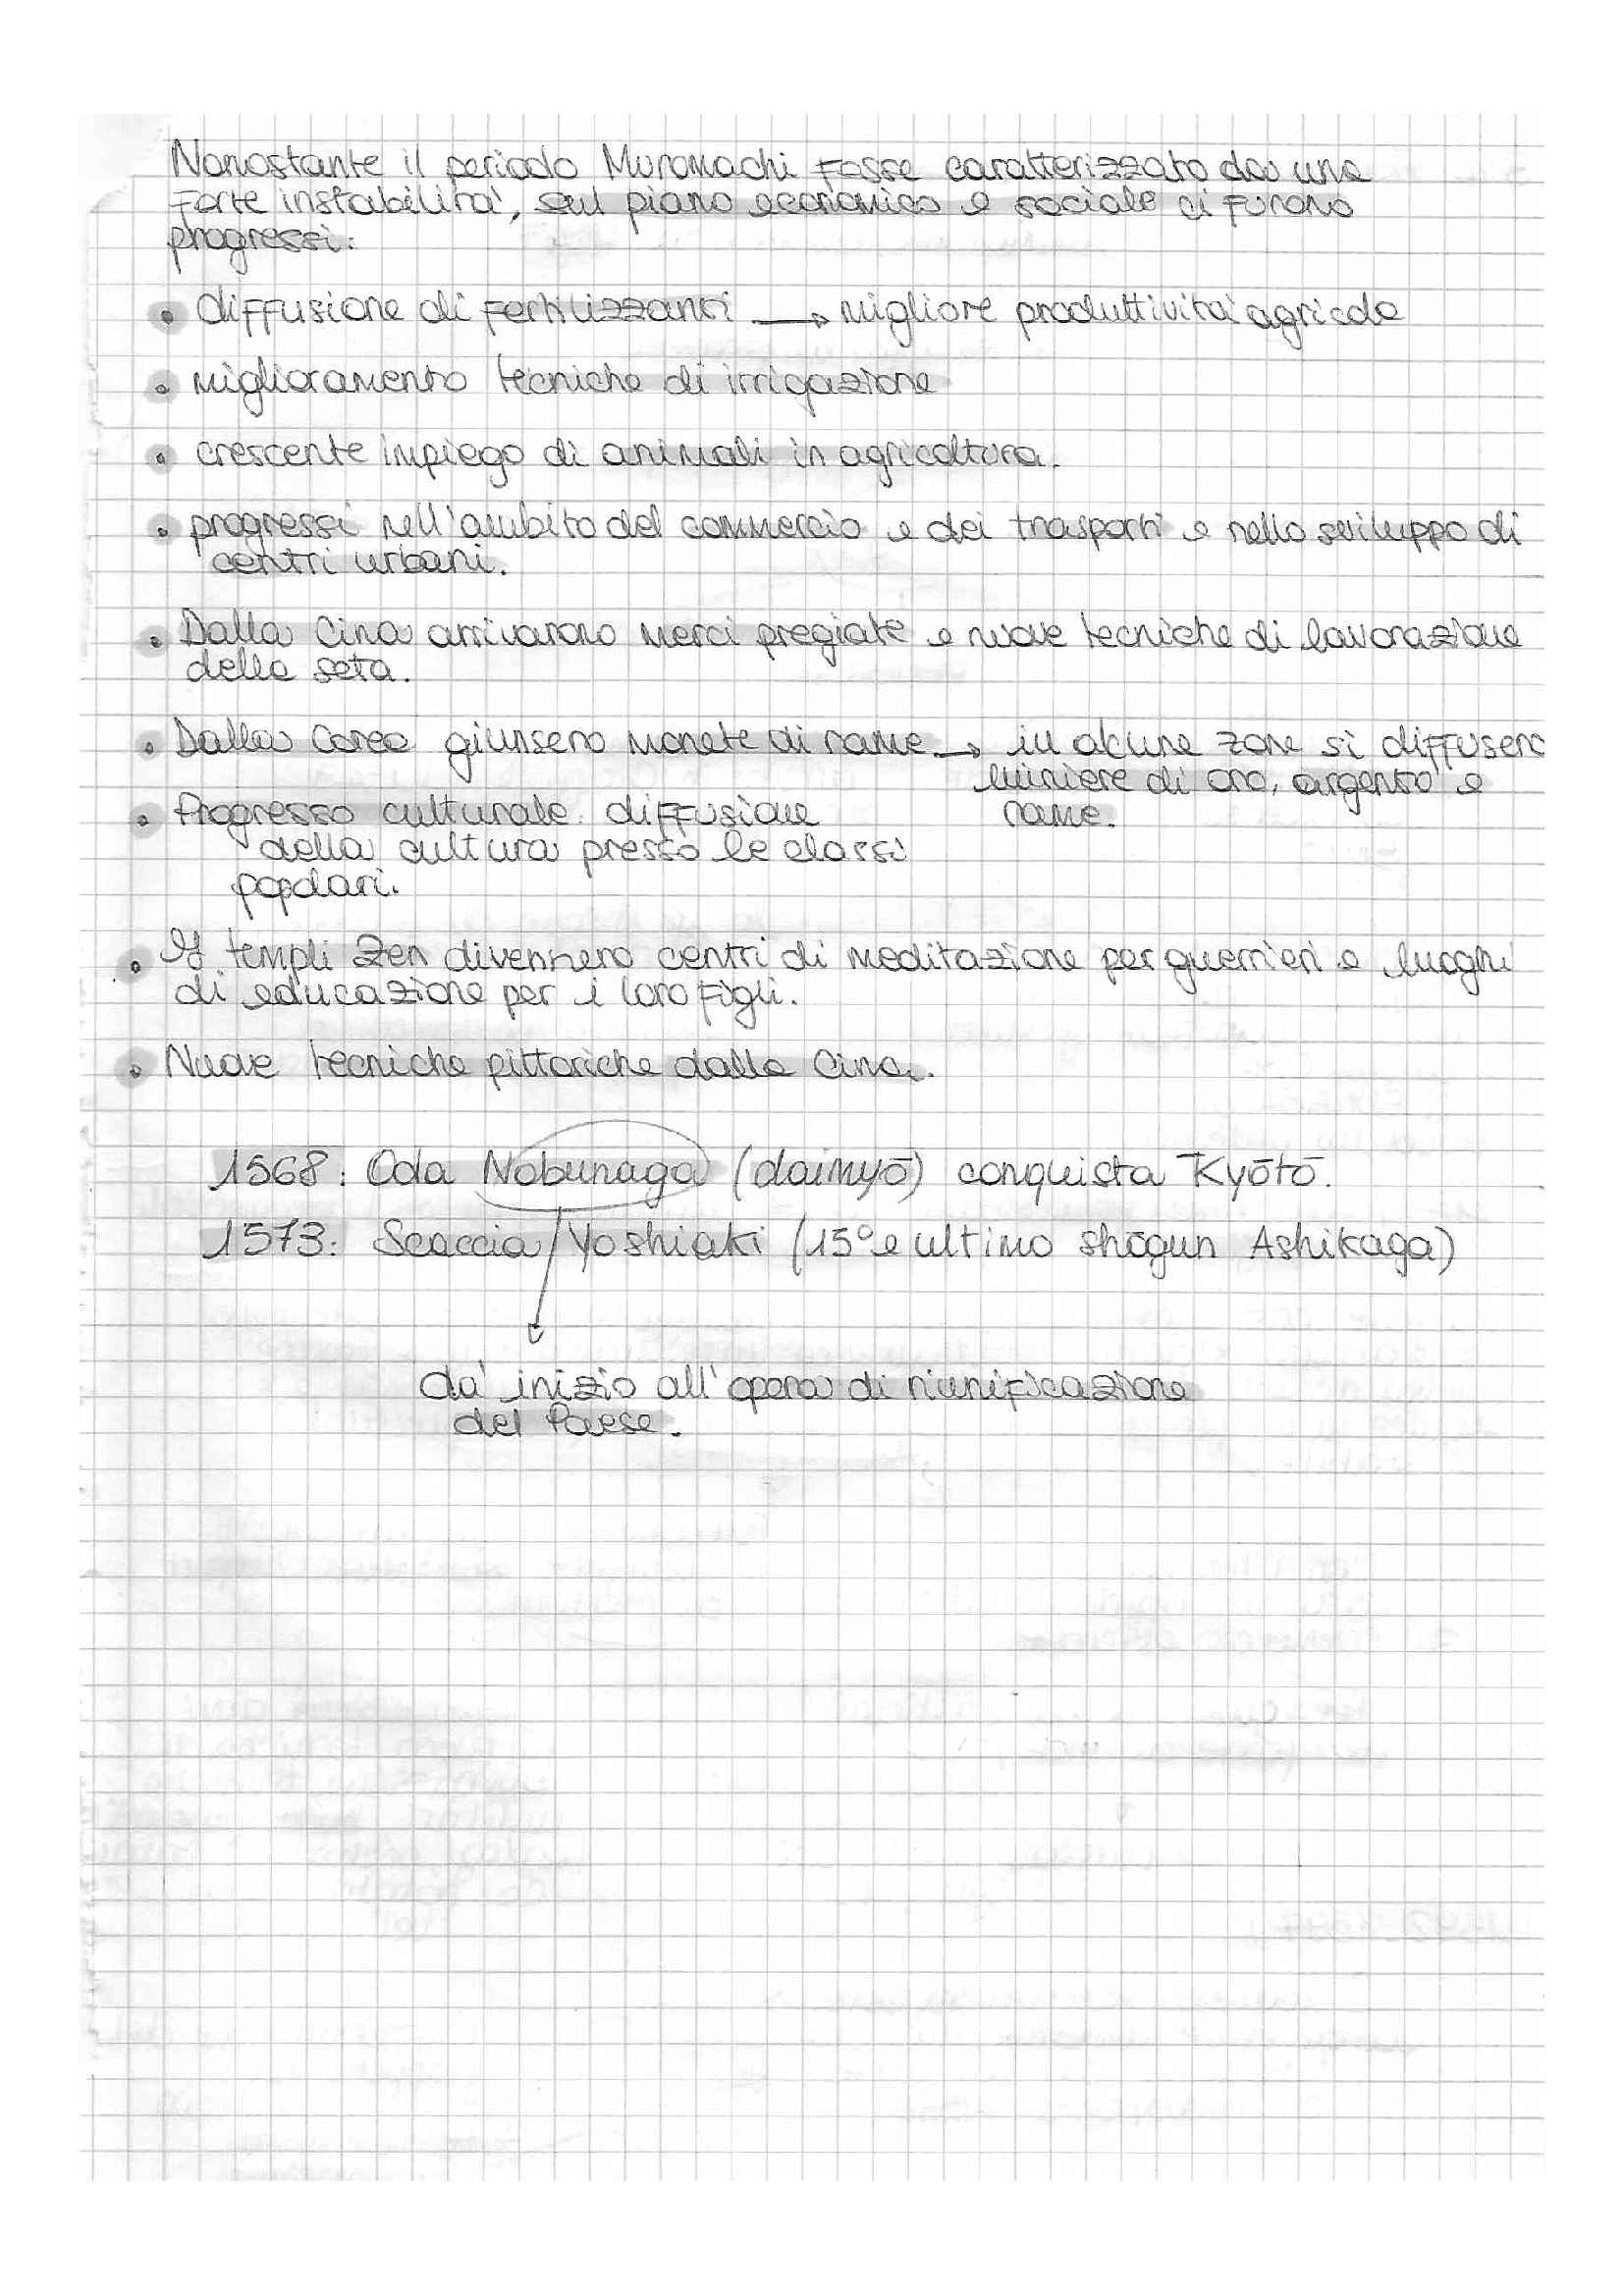 Nonostante il periodo Muromachi fosse caratterizzato da una
forte instabilità, sul piano economico e sociale ci furono
progressi:
• diffusione di fertilizzanti → migliore produttività agricola
• miglioramento tecniche di irrigazione
• crescente impiego di animali in agricoltura.
• progressi nell'ambito del commercio e dei trasporti e nello sviluppo di
centri urbani.
• Dalla Cina arrivarono merci pregiate e nuove tecniche di lavorazione
della seta.
• Dalla Corea giunsero monete di rame → in alcune zone si diffusero
miniere di oro, argento e
rame.
• Progresso culturale: diffusione
della cultura presso le classi
popolari.
• I templi Zen divennero centri di meditazione per guerrieri e luoghi
di educazione per i loro figli.
• Nuove tecniche pittoriche dalla Cina.
1568: Oda Nobunaga (daimyō) conquista Kyōtō.
1573: Scaccia Yoshiaki (15° e ultimo shōgun Ashikaga)
da' inizio all'opera di riunificazione
del Paese.